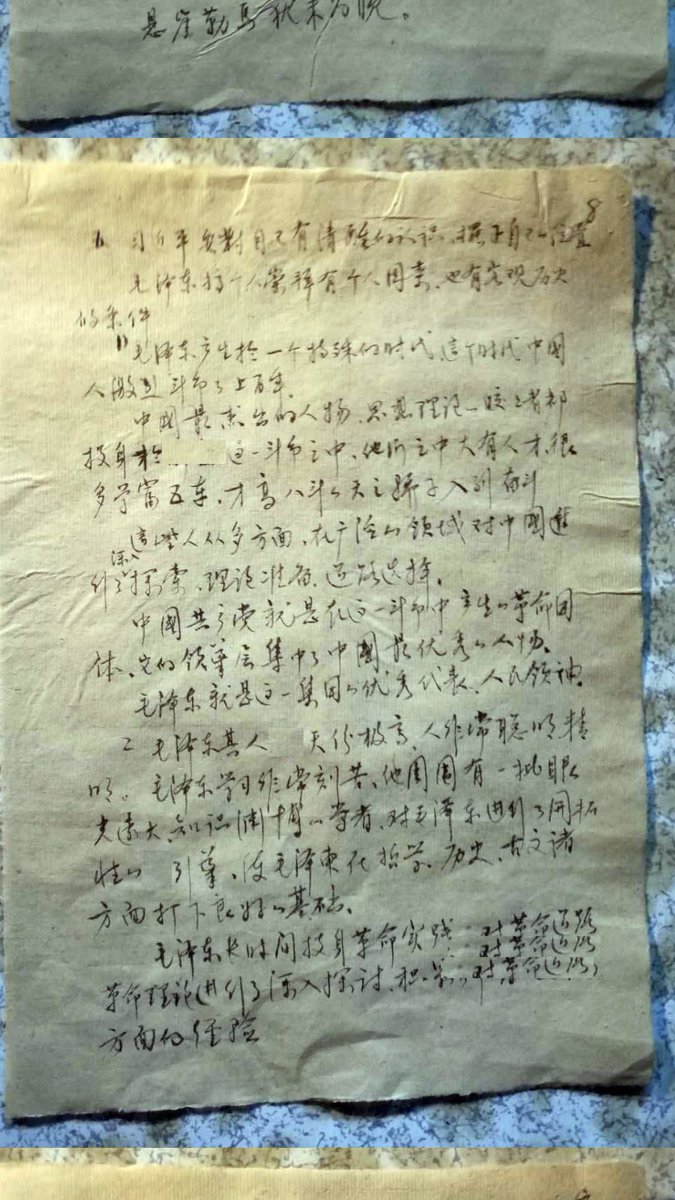 悬崖勒马犹未为晚。
8
习近平要对自己有清醒的认识，摆正自己位置
毛泽东搞个人崇拜有个人因素，也有客观历史
的条件
1）毛泽东产生於一个特殊的时代，这个时代中国
人激烈斗争了上百年。
中国最杰出的人物，思想理论一般之者都
投身於 这一斗争之中，他们之中大有人才，很
多学富五车，才高八斗的天之骄子入列奋斗
这些人从多方面，在广泛的领域对中国进
行了深入探索，理论准备，道路选择。
中国共产党就是在这一斗争中产生的革命团
体，它的领导层集中了中国最优秀的人物。
毛泽东就是这一集团的优秀代表，人民领袖。
2 毛泽东其人 天份极高，人非常聪明精
明。毛泽东学习非常刻苦，他周围有一批眼
光远大，知识渊博的学者，对毛泽东进行了开拓
性的 引导，使毛泽东在哲学、历史、古文诸
方面打下良好的基础。
毛泽东长时间投身革命实践，对革命道路
对革命道路
革命理论进行了深入探讨，积累 对革命道路
方面的经验